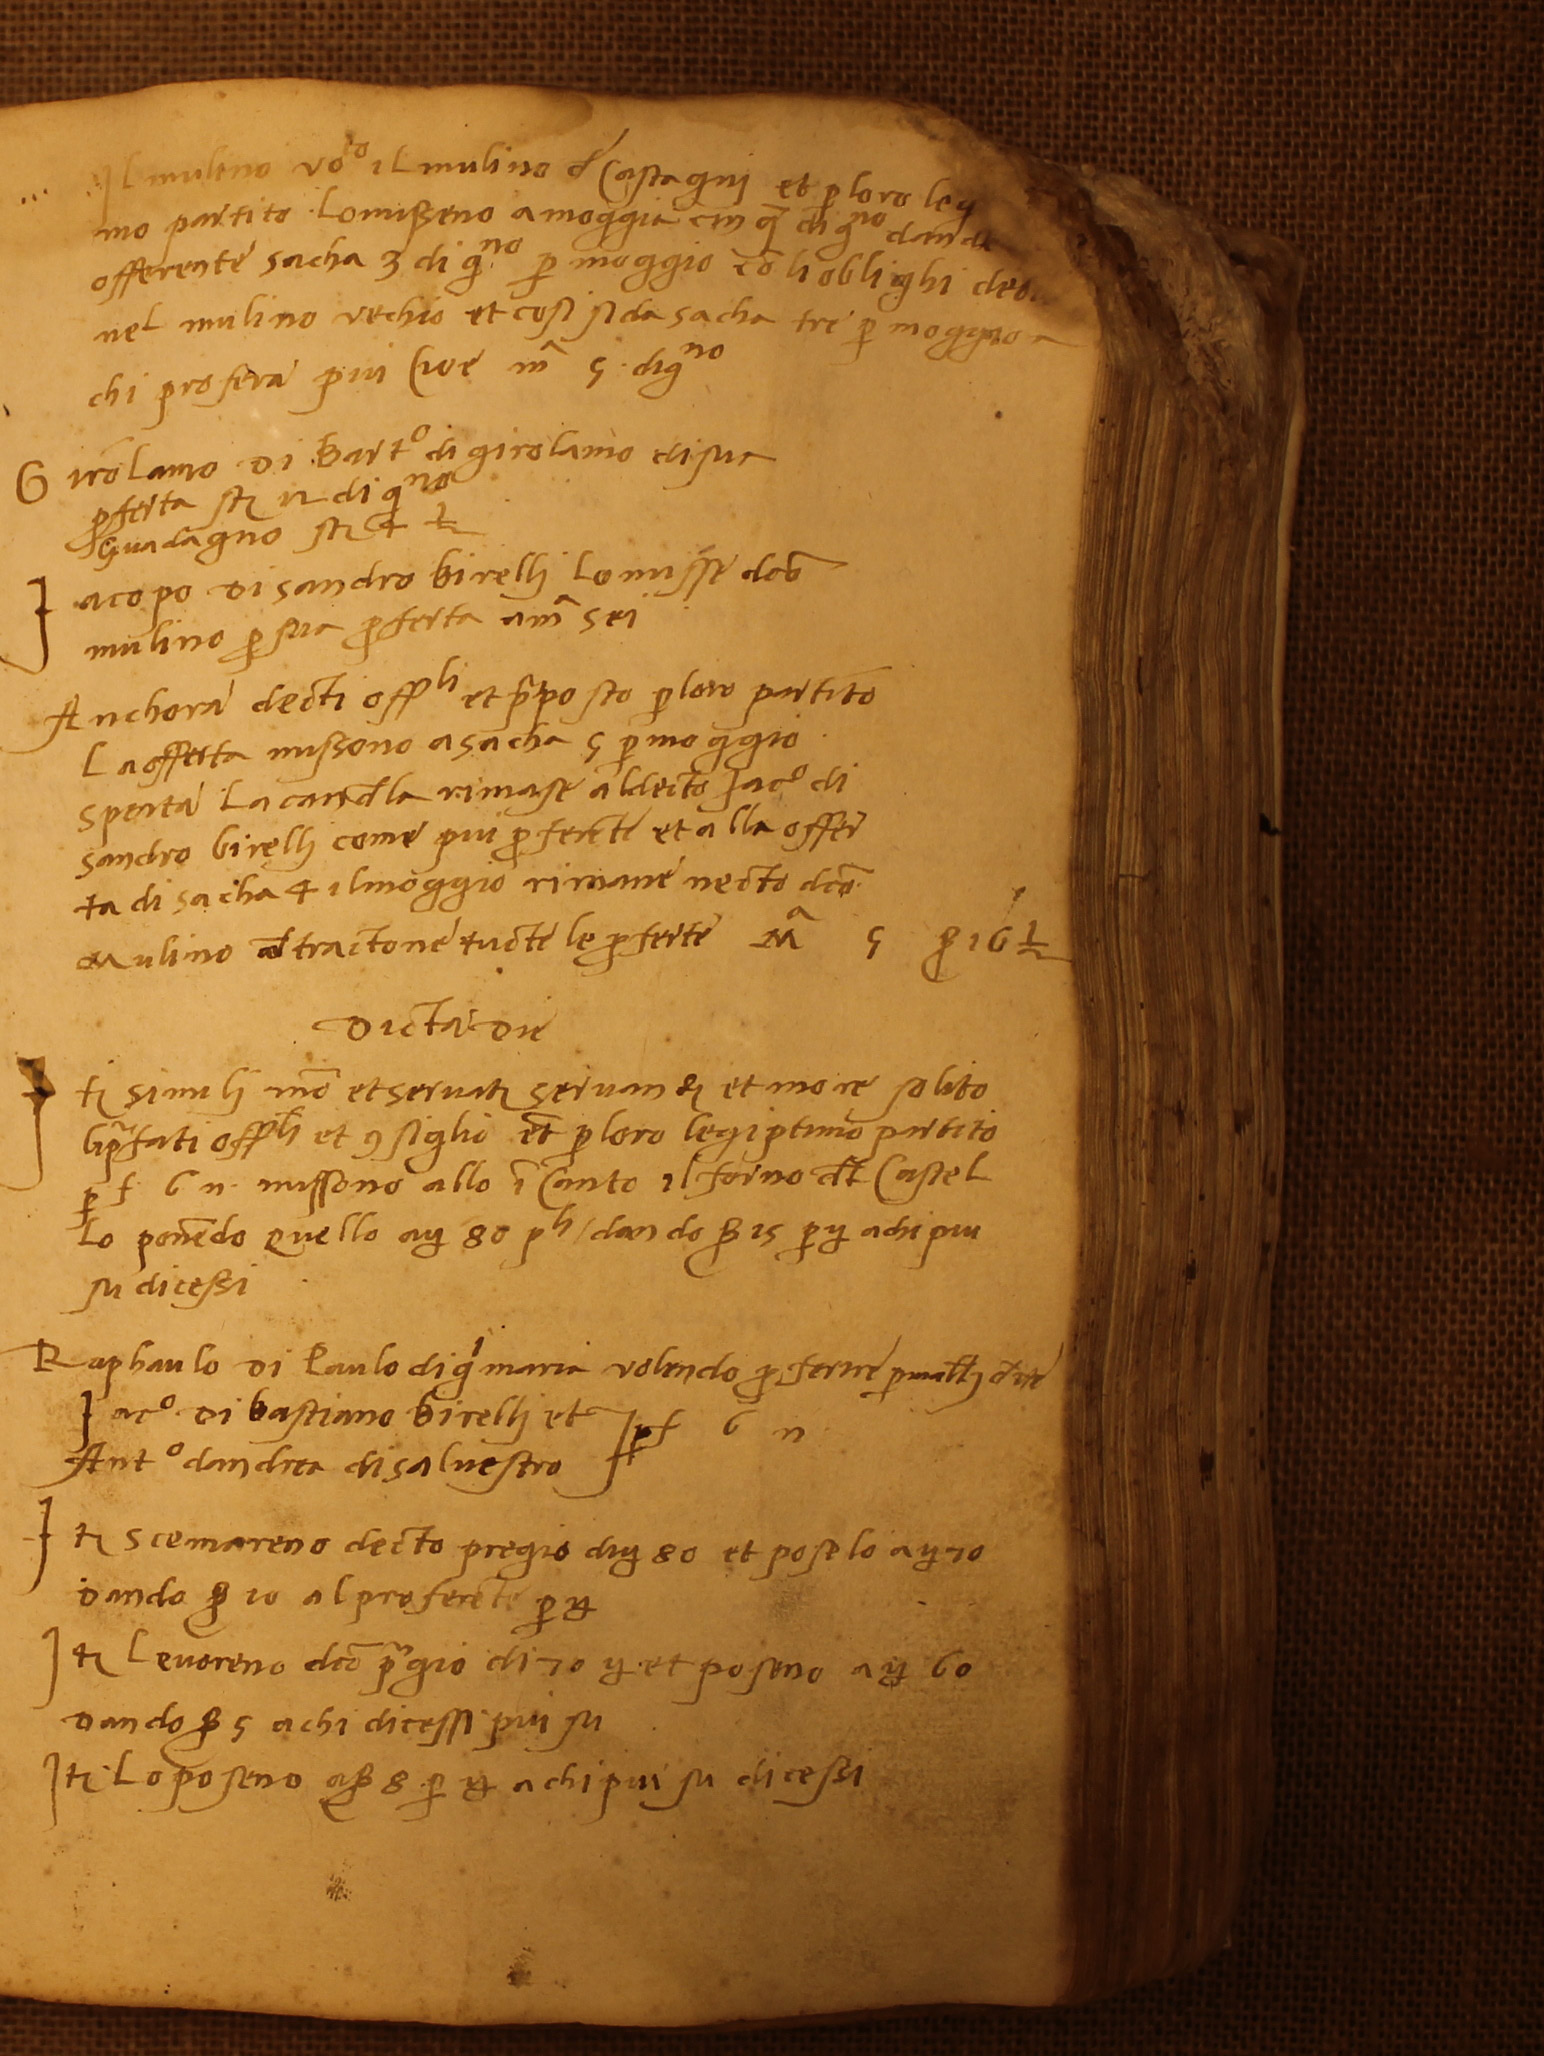 Il mulino vo.to il mulino d Castagni et p loro leg
mo partito lomisseno a moggia cinq di g.no dand
offerente sacha 3 di g.no p moggio cō li oblighi
nel mulino vechio et cosi si da sacha tre p moggio a
chi profera piu Cioe m̄ 5 di g.no
Girolamo di Bart.o di girolamo di sua
pferta st 12 di g.no
Guadagno st 4 ½
Jacopo di sandro birelli lo misse dco
mulino p sua pferta a m̄ sei
Anchora decti offli et pposto p loro partito
La offerta missono a sacha 5 p moggio
spenta la candla rimase al decto Jac.o di
sandro birelli come piu pferente et alla offer
ta di sacha 4 il moggio rimane necto dco
Mulino tractone tucte le pferte M.a 5 16 ½
Dicta Die
It simili mō et servatis servandis et more solito
li pfati offli et 9siglio et p loro legiptimo partito
p f 6 n missono allo ī Canto il forno dl Castel
lo ponēdo quello a 80 dando 15 p achi piu
su dicessi
Raphaulo di Paulo di g maria volendo pferire
Jac.o di bastiano birelli et p f 6 n
Ant.o dandrea di salvestro
It scemareno decto pregio di 80 et poselo a 70
dando 10 al proferente p
It Levoreno dco pgio di 70 et poseno a 60
dando 5 a chi dicessi piu su
It Lo poseno a 8 p a chi piu su dicessi